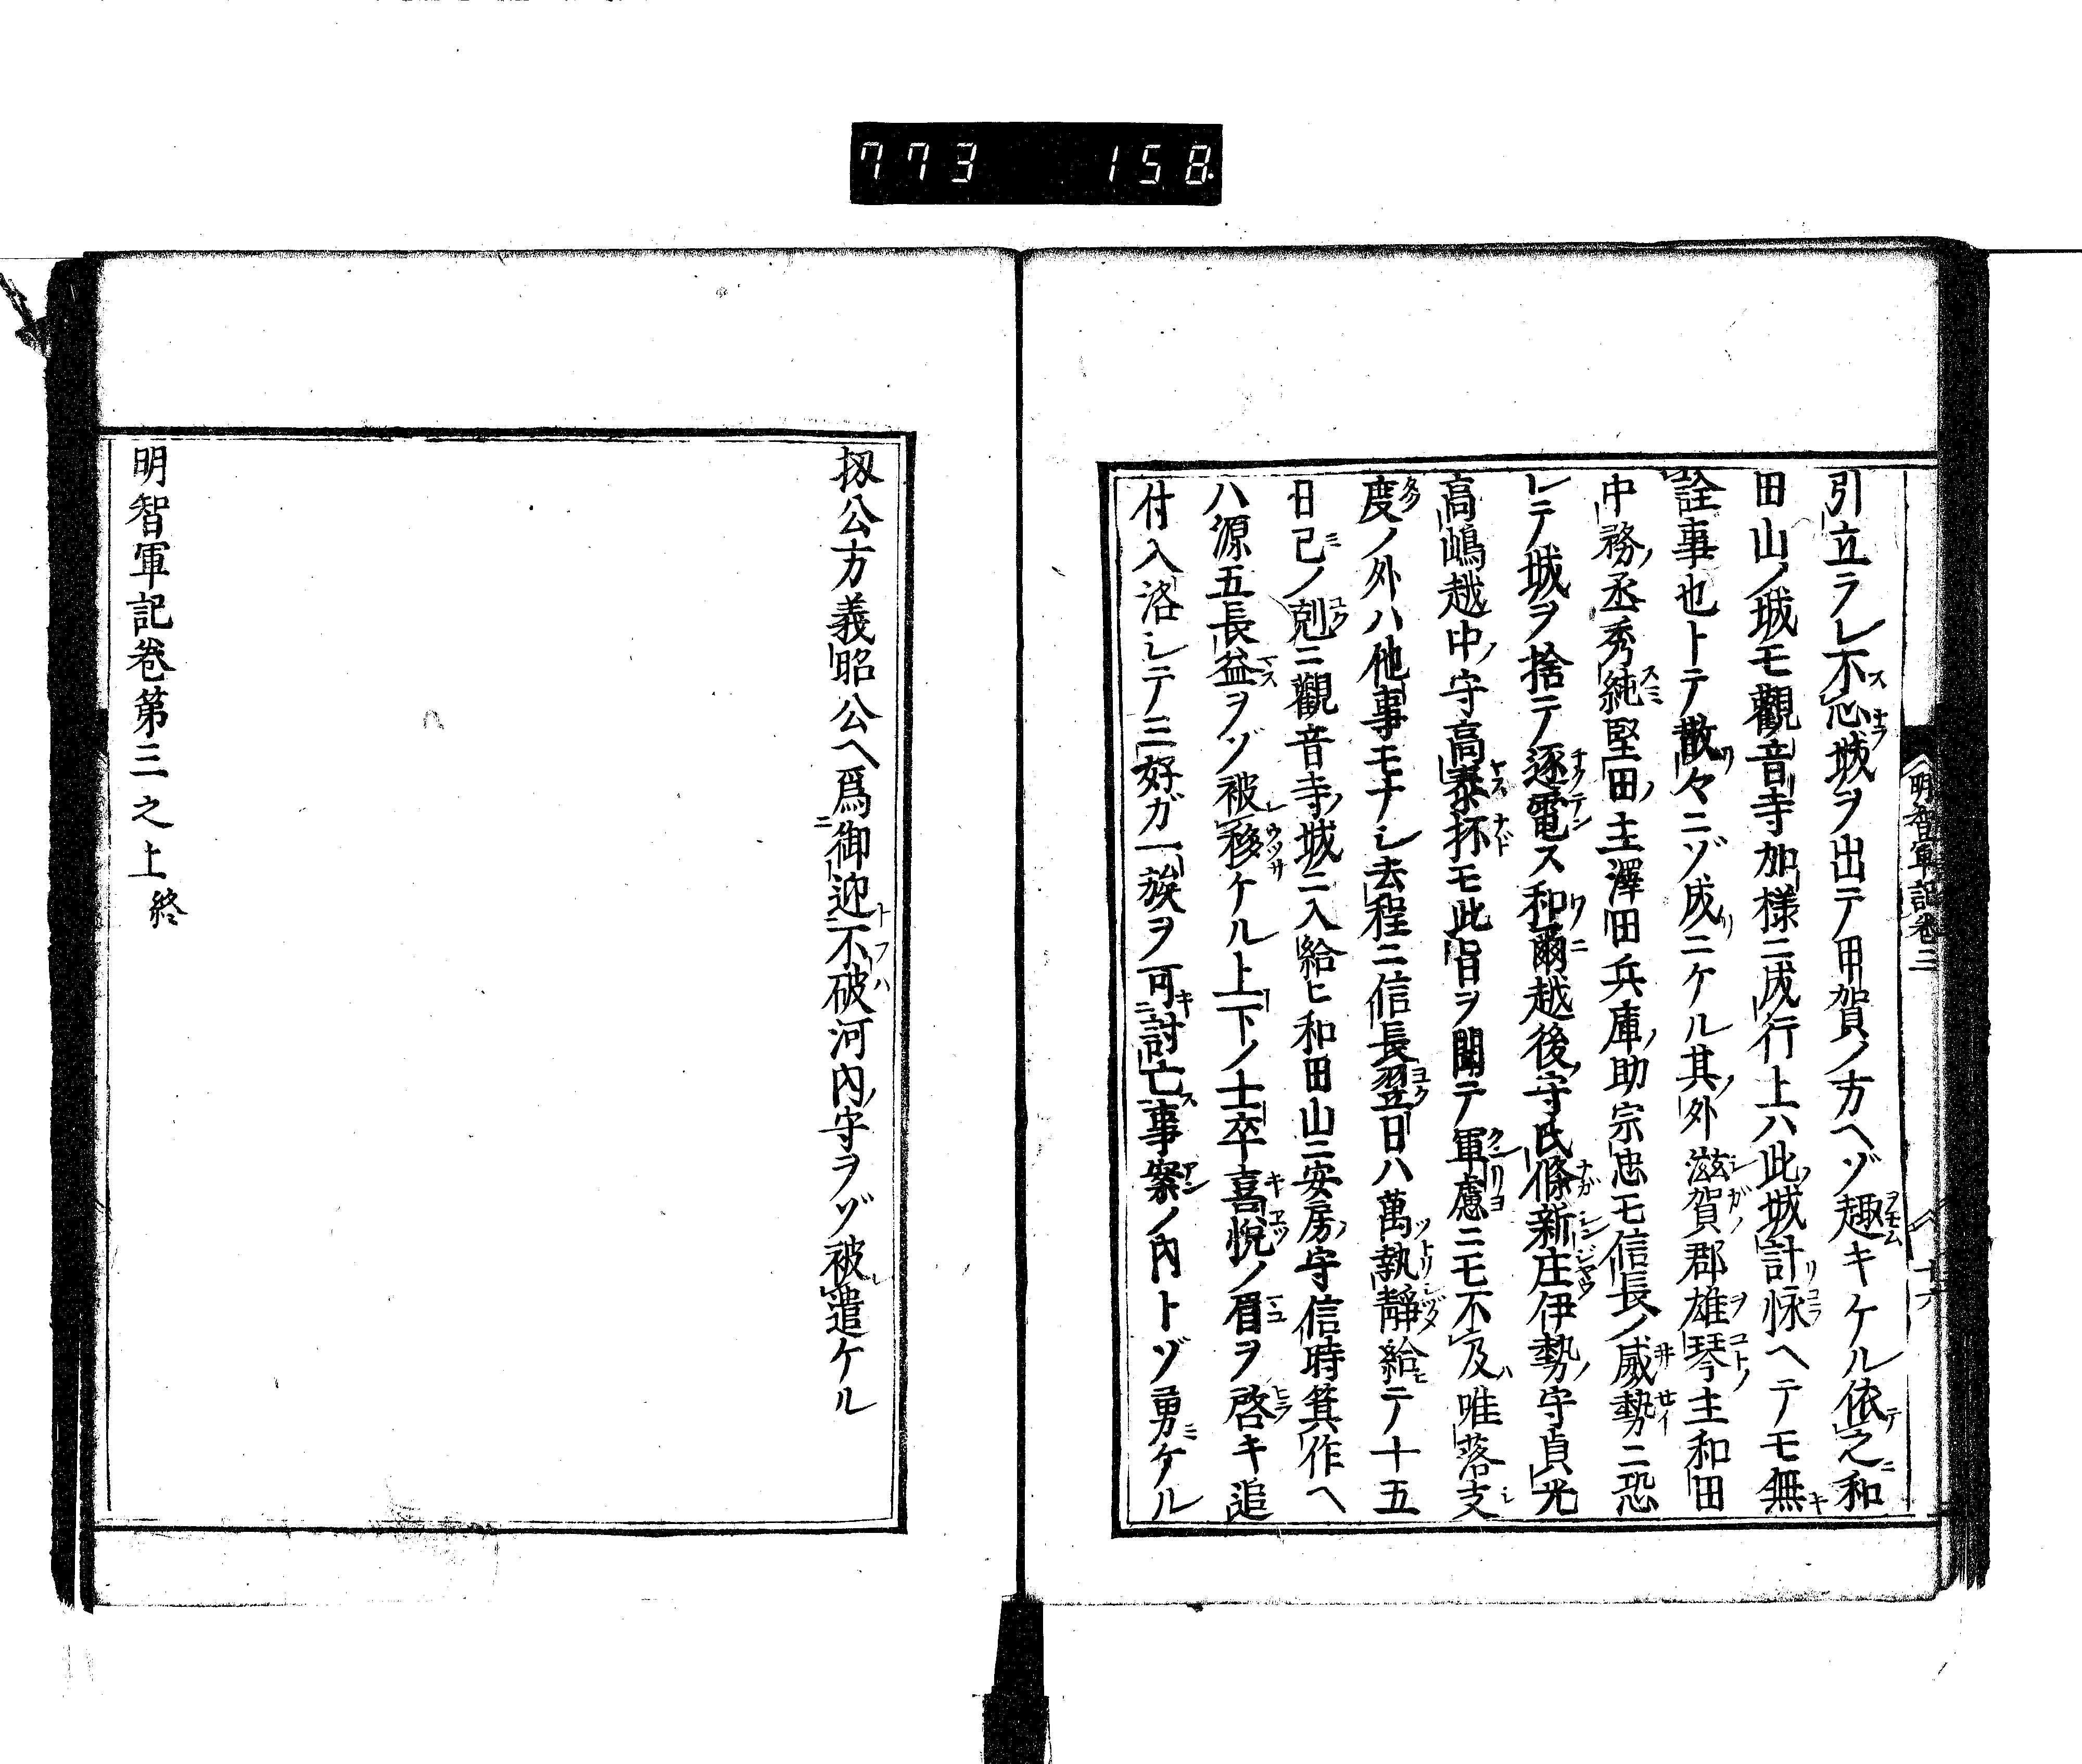 773 158
明智軍記卷三
十六
引立ラレ不忍城ヲ出テ甲賀ノ方ヘゾ趣キケル依之和
田山ノ城モ觀音寺加樣ニ成行上ハ此城計怺ヘテモ無
詮事也トテ散々ニゾ成ニケル其外滋賀郡雄琴主和田
中務丞秀純堅田ノ主澤田兵庫助宗忠モ信長ノ威勢ニ恐
レテ城ヲ捨テ逐電ス和爾越後守氏條新庄伊勢守貞光
高嶋越中守高泰抔モ此旨ヲ聞テ軍慮ニモ不及唯落支
度ノ外ハ他事モナシ去程ニ信長翌日ハ萬執靜給テ十五
日己ノ剋ニ觀音寺城ニ入給ヒ和田山ニ安房守信時箕作ヘ
ハ源五長益ヲゾ被移ケル上下ノ士卒喜悅ノ眉ヲ啓キ追
付入洛シテ三好ガ一族ヲ可討亡事案ノ內トゾ勇ケル
扨公方義昭公ヘ爲御迎不破河內守ヲゾ被遣ケル
明智軍記卷第三之上終